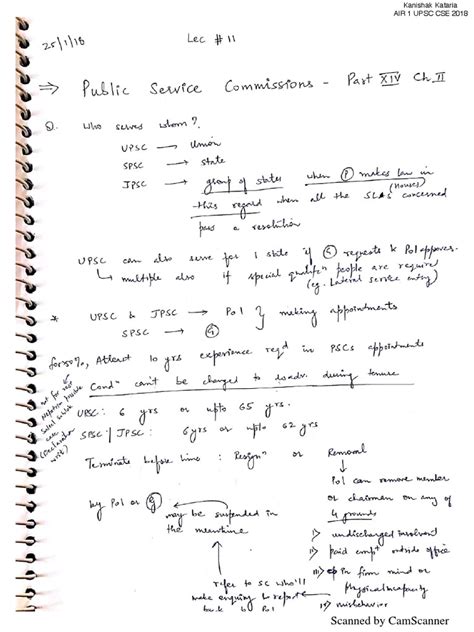 Kanishak Kataria
AIR 1 UPSC CSE 2018
25/1/18
Lec #11
⇒ Public Service Commissions - Part XIV Ch II
Q. Who serves whom?
UPSC → Union
SPSC → State
JPSC → group of states when (P) makes law in
this regard when all the SLAs (Houses) concerned
pass a resolution
UPSC can also serve for 1 state if (G) requests & PoI approves.
↳ multiple also if special qualifn people are require
(eg. Lateral service entry)
* UPSC & JPSC → PoI } making appointments
SPSC → (G)
for 50%, Atleast 10 yrs experience reqd in PSCs appointments
Condn can't be changed to disadv. during tenure
UPSC: 6 yrs or upto 65 yrs.
SPSC/JPSC: 6 yrs or upto 62 yrs
Terminate before time: Resign or Removal
by PoI or (G)
may be suspended in
the meanwhile
PoI can remove member
or chairman on any of
4 grounds
i) undischarged insolvent
ii) paid empt outside office
iii) in firm mind or
physical incapacity
iv) misbehavior
refer to SC who'll
make enquiry & report
back to PoI
Scanned by CamScanner